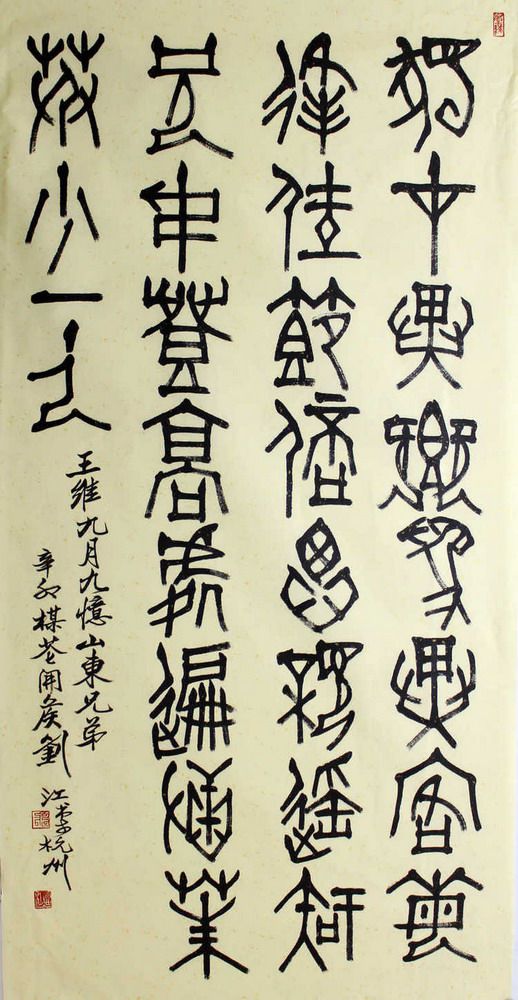 獨在異鄉為異客每
逢佳節倍思親遙知
兄弟登高處遍插茱
萸少一人
王維九月九憶山東兄弟
辛卯楳花開候劉
江書於杭州